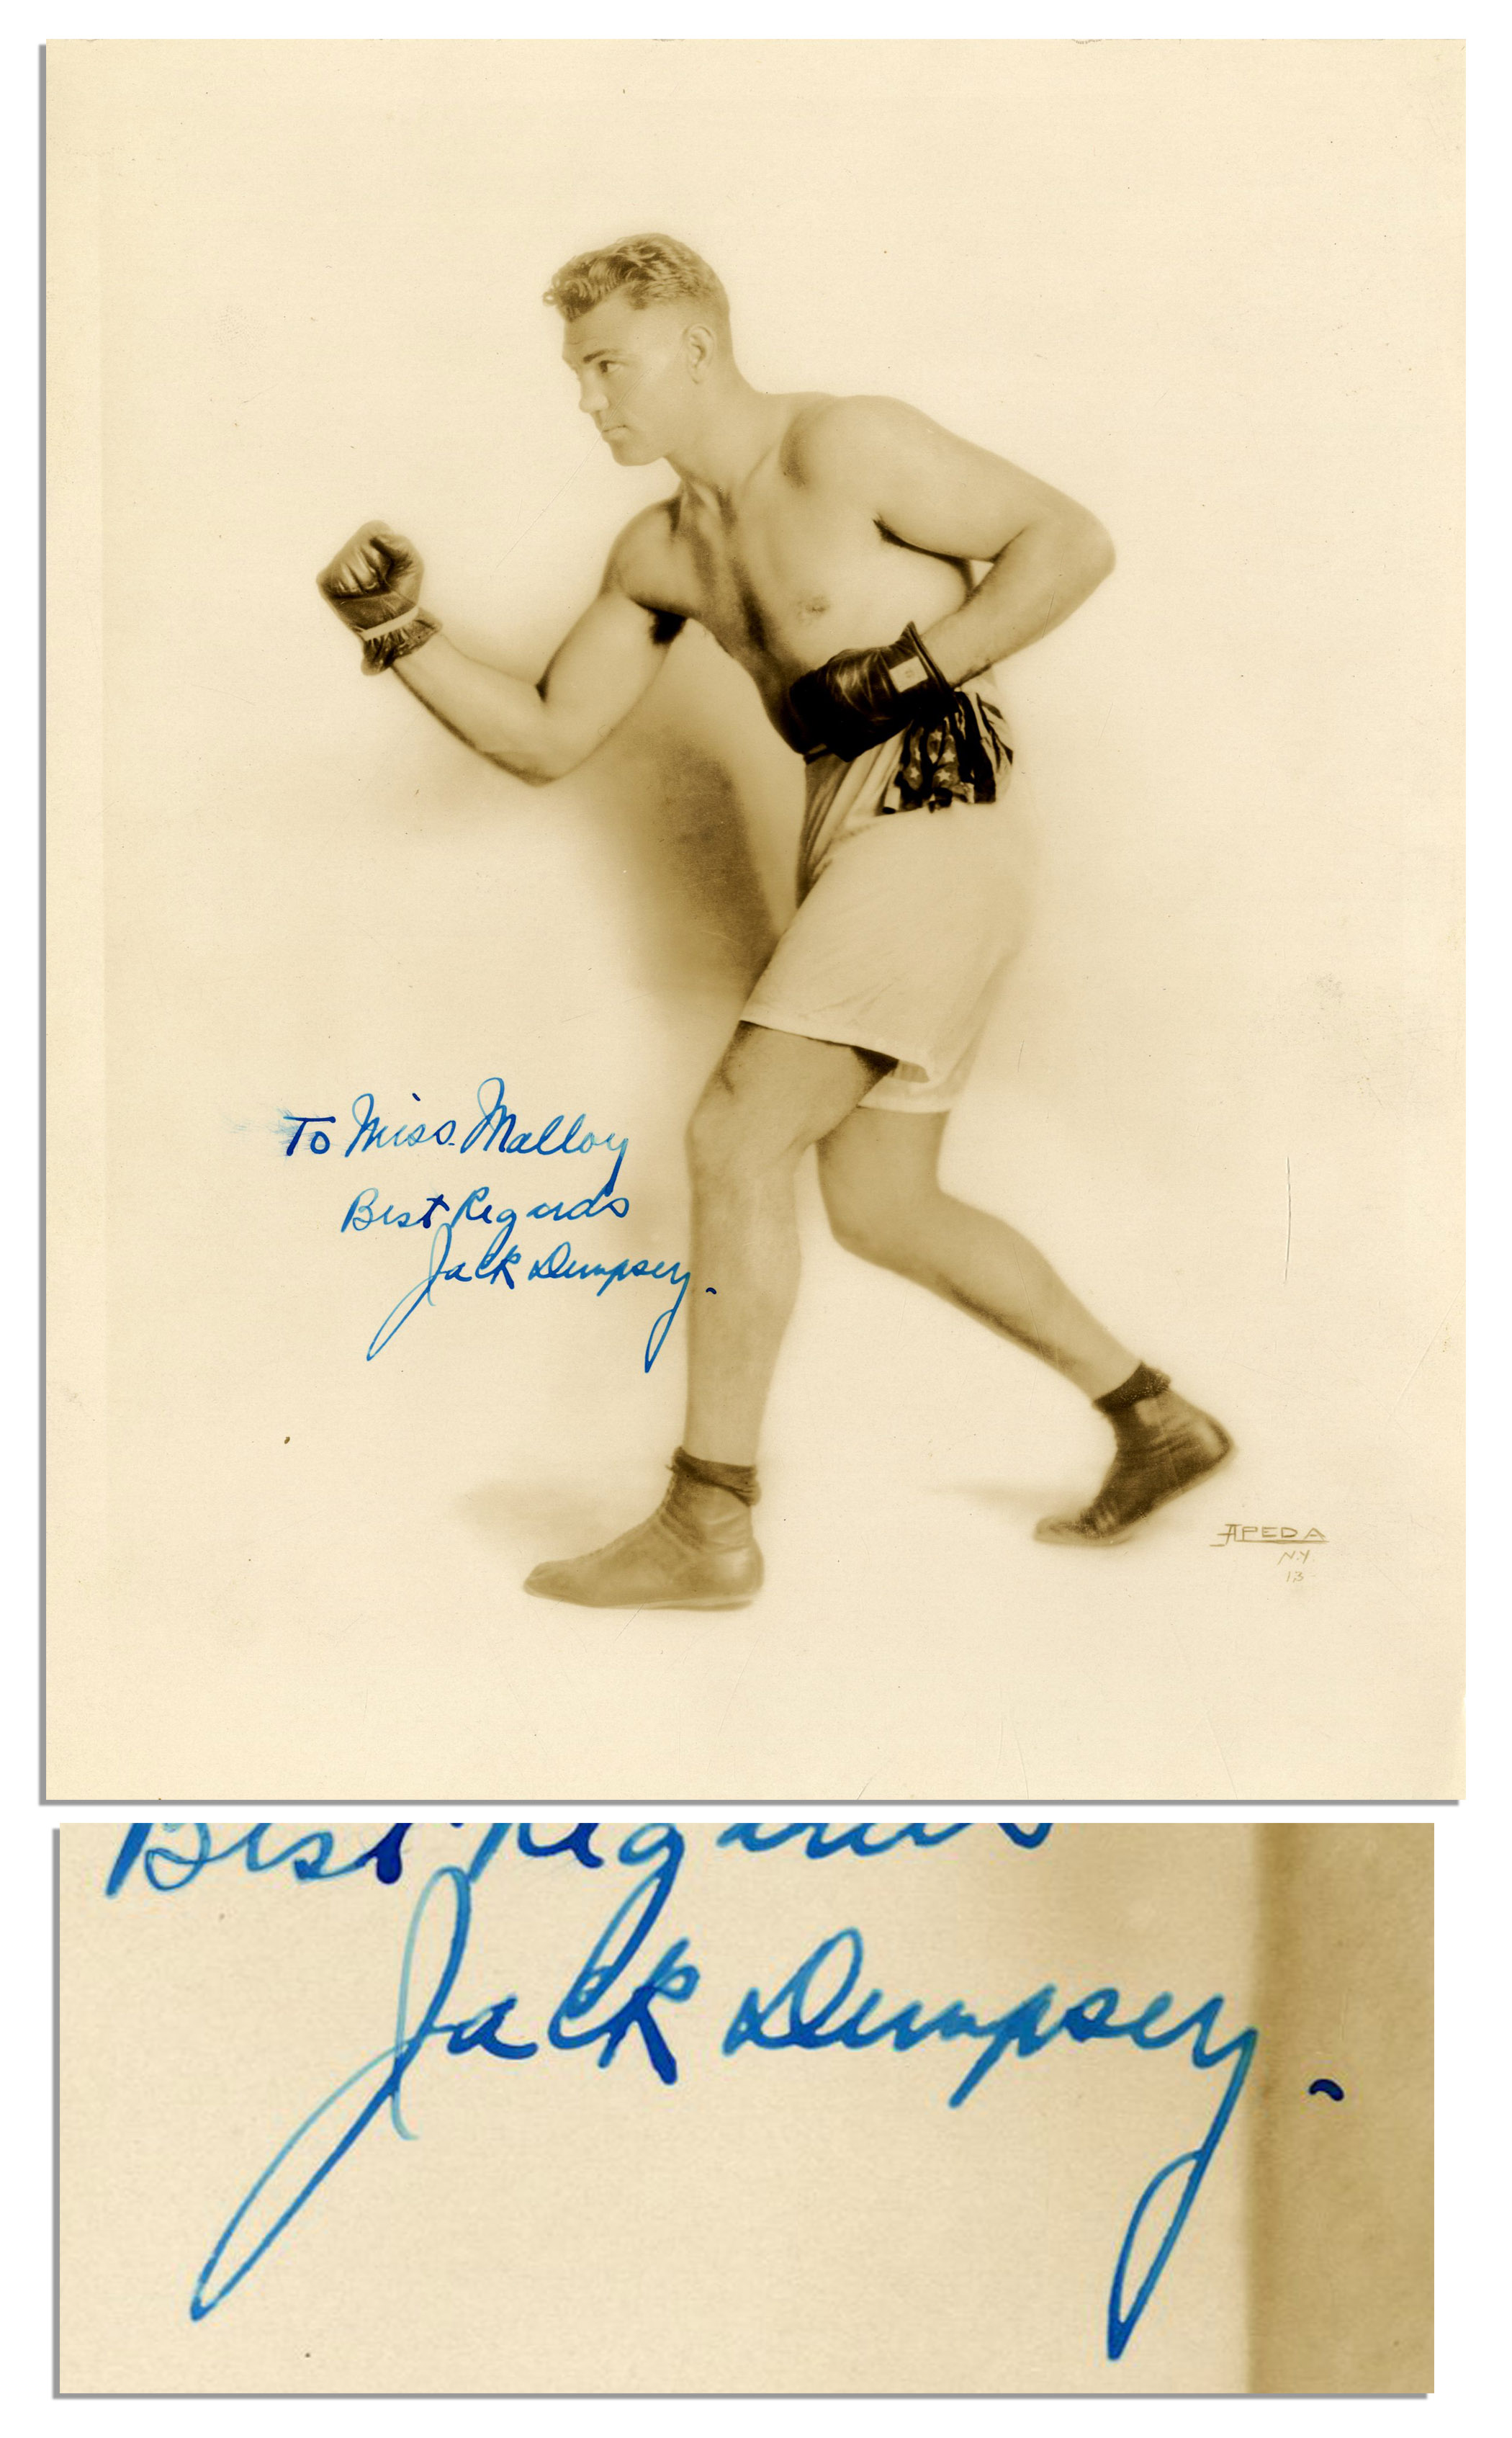 To Miss. Malloy
Best Regards
Jack Dempsey.
APEDA
N.Y.
13
Best Regards
Jack Dempsey.